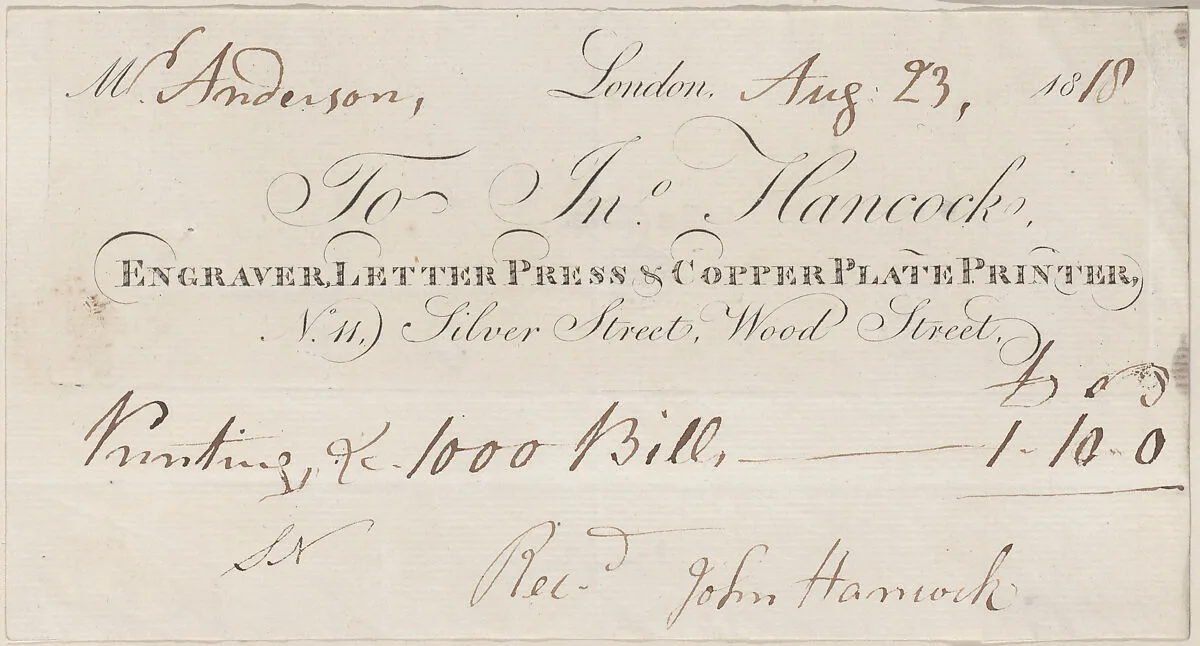 Mr. Anderson, London, Aug: 23, 1818
To Jno. Hancock,
ENGRAVER, LETTER PRESS & COPPER PLATE PRINTER,
No. 11, Silver Street, Wood Street.
£ s d
Printing, &c. 1000 Bills — 1 - 10 - 0
Rec.d John Hancock